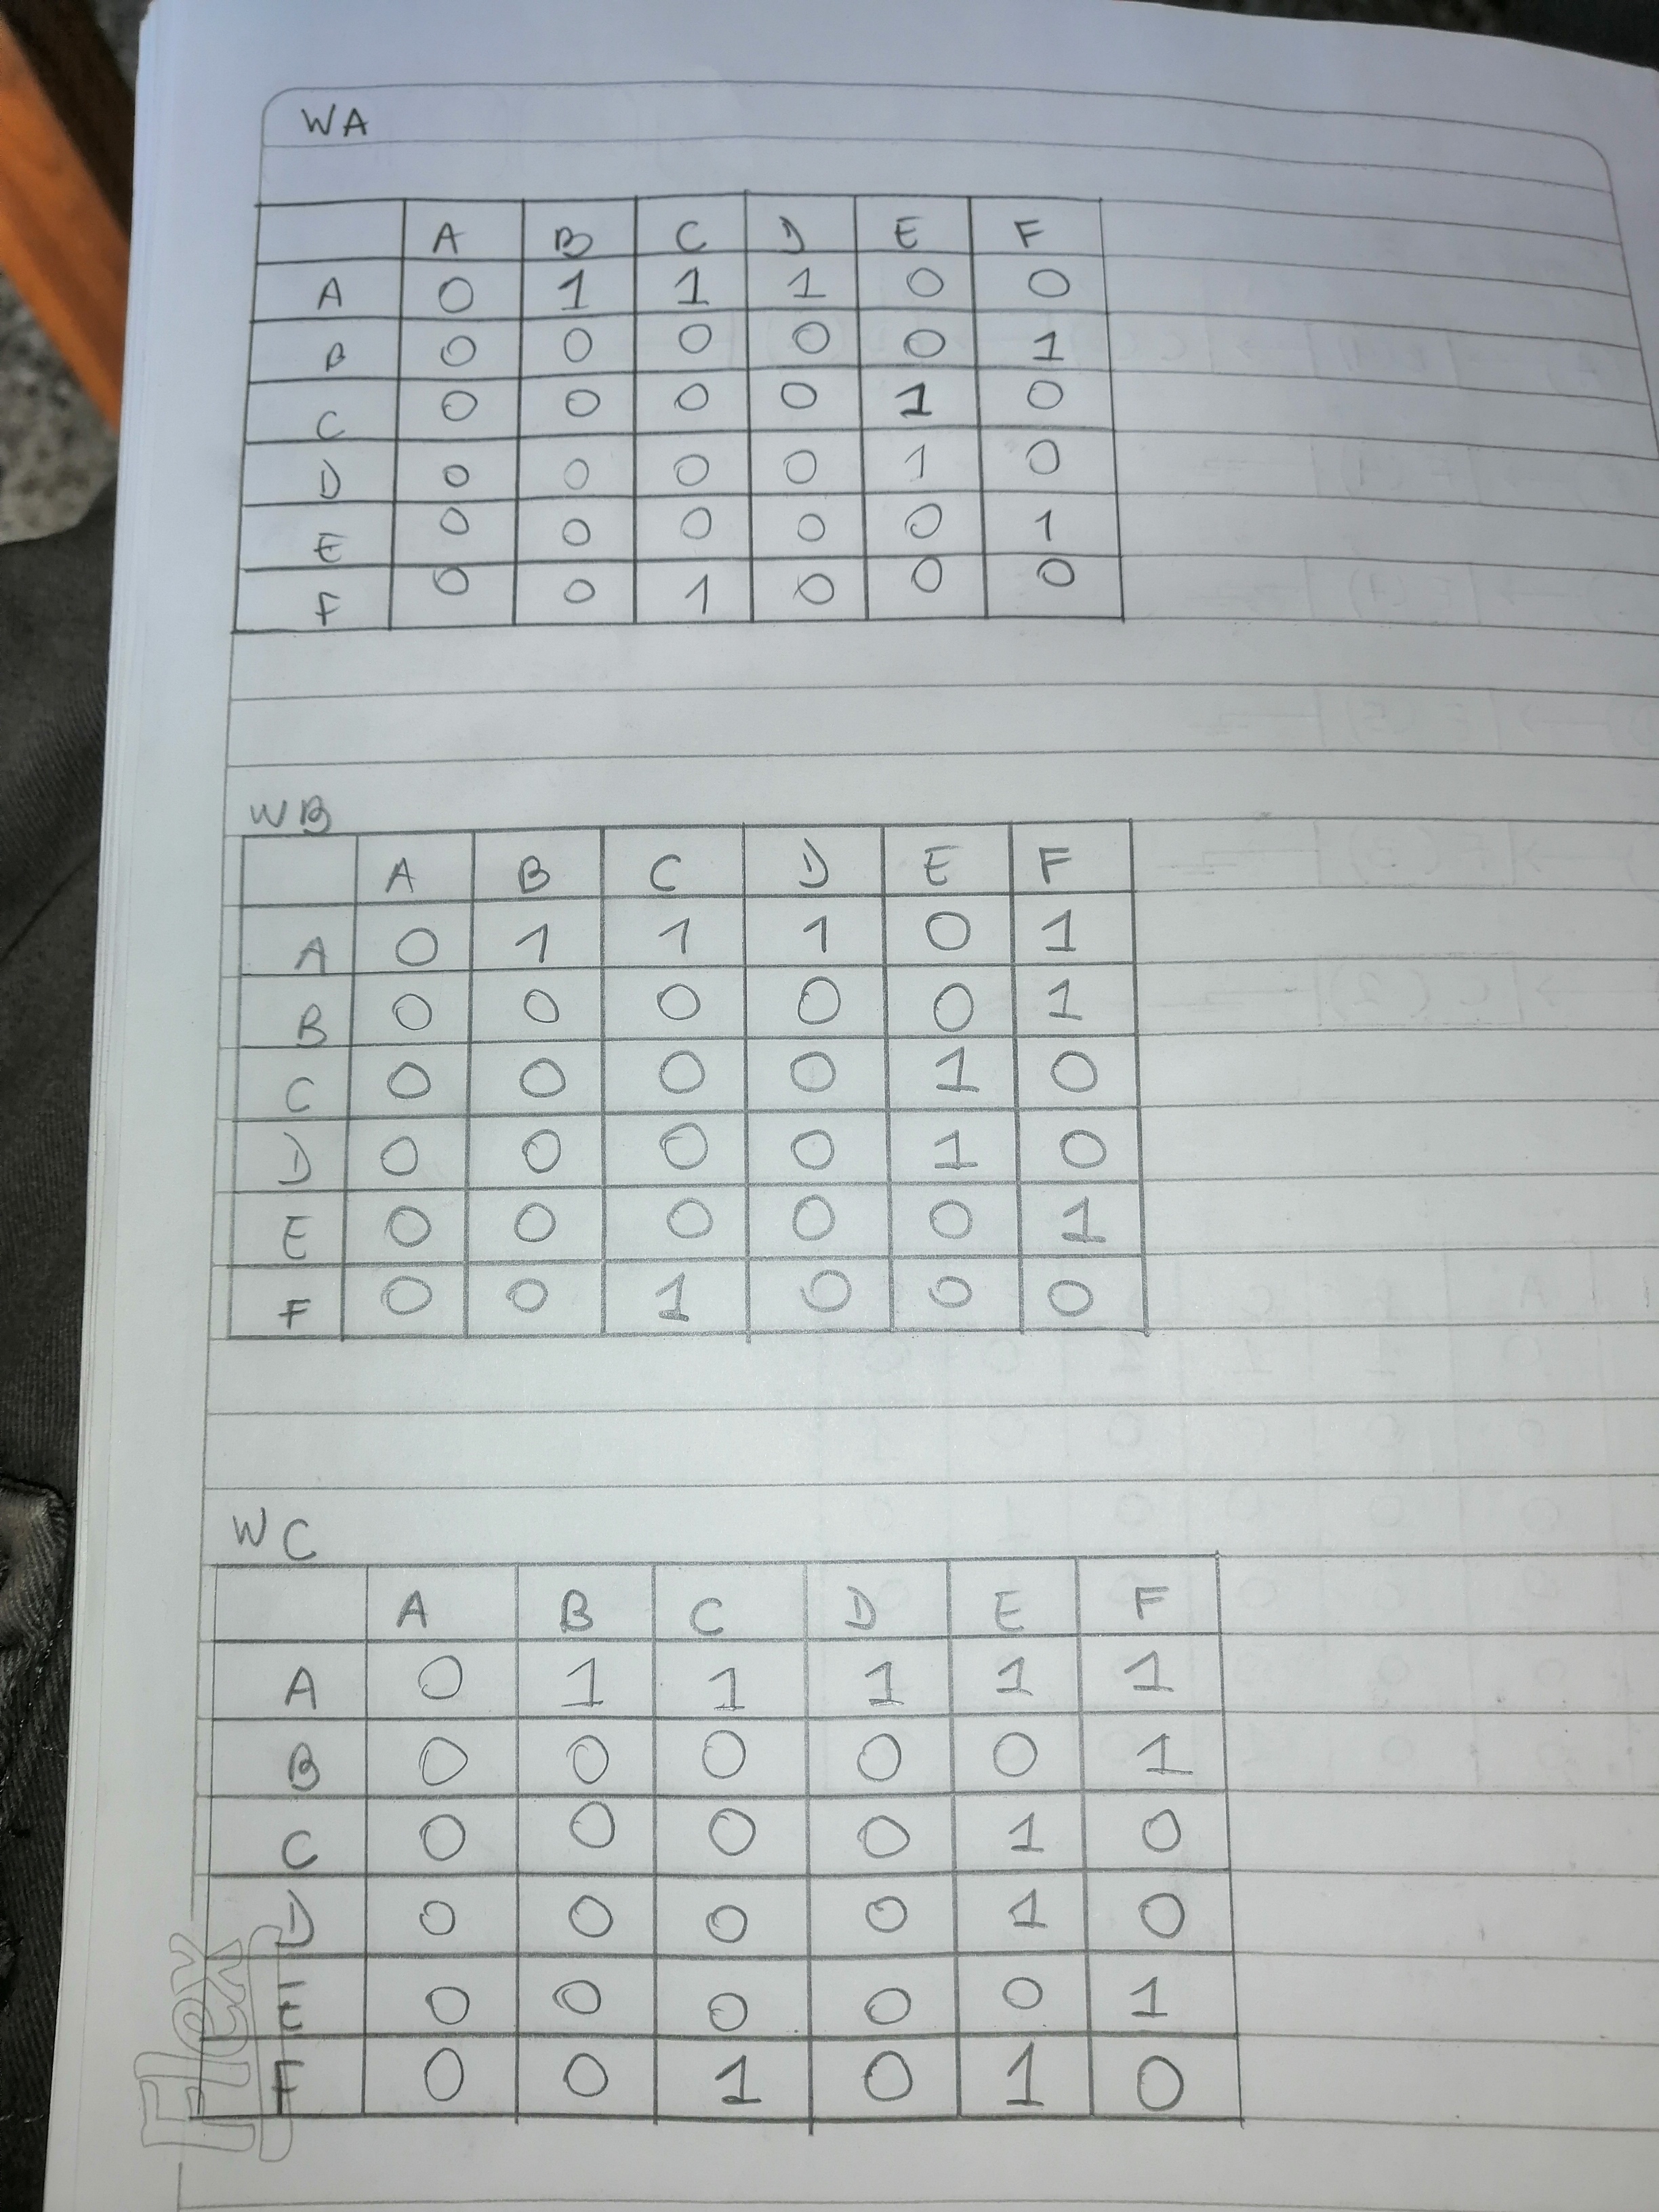 WA
A B C D E F
A 0 1 1 1 0 0
B 0 0 0 0 0 1
C 0 0 0 0 1 0
D 0 0 0 0 1 0
E 0 0 0 0 0 1
F 0 0 1 0 0 0
WB
A B C D E F
A 0 1 1 1 0 1
B 0 0 0 0 0 1
C 0 0 0 0 1 0
D 0 0 0 0 1 0
E 0 0 0 0 0 1
F 0 0 1 0 0 0
WC
A B C D E F
A 0 1 1 1 1 1
B 0 0 0 0 0 1
C 0 0 0 0 1 0
D 0 0 0 0 1 0
E 0 0 0 0 0 1
F 0 0 1 0 1 0
Flex